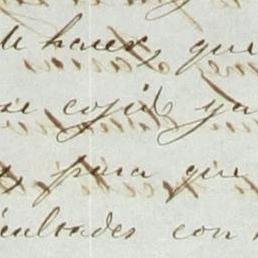 de hacer, que
se cojió ya
para que
icultades con